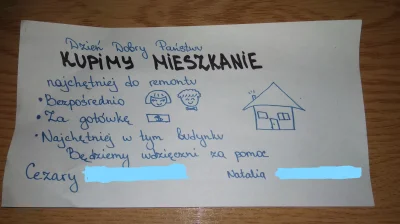 Dzień Dobry Państwu
KUPIMY MIESZKANIE
najchętniej do remontu
• Bezpośrednio
• Za gotówkę $
• Najchętniej w tym budynku
Będziemy wdzięczni za pomoc
Cezary Natalia